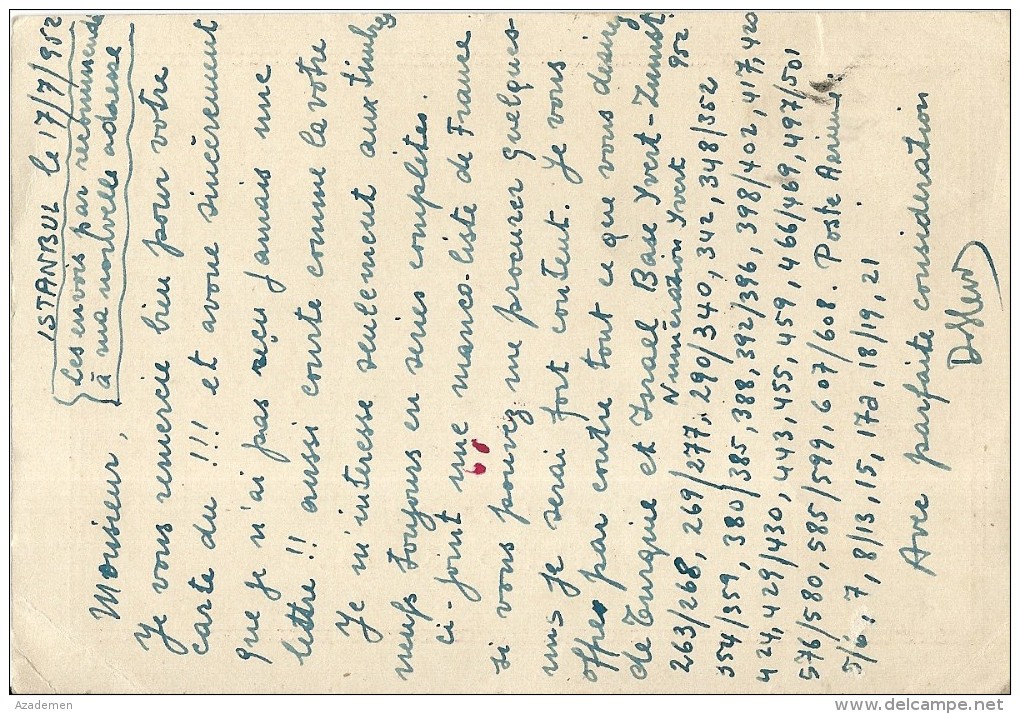 ISTANBUL le 17/7/952
Les envois par recommendé
à ma nouvelle adresse
Monsieur,
Je vous remercie bien pour votre
carte du !!! et avoue sincèrement
que je n'ai pas reçu jamais une
lettre !! aussi courte comme la votre
Je m'interesse seulement aux timbres
neufs toujours en series complètes.
ci-joint une manco-liste de France
60
si vous pouvez me procurer quelques
uns je serai fort content. Je vous
offre par contre tout ce que vous desirez
de Turquie et Israel Base Yvert-Zumst.
952
Numération Yvert
263/268, 269/277, 290/340, 342, 348/352
354/359, 380/385, 388, 392/396, 398/402, 417, 420
424, 429/430, 443, 455, 459, 466/469, 497/501,
576/580, 585/599, 607/608. Poste Aerienne.
5/6, 7, 8/13, 15, 17a, 18/19, 21
Avec parfaite consideration
Azademen
www.delcampe.net